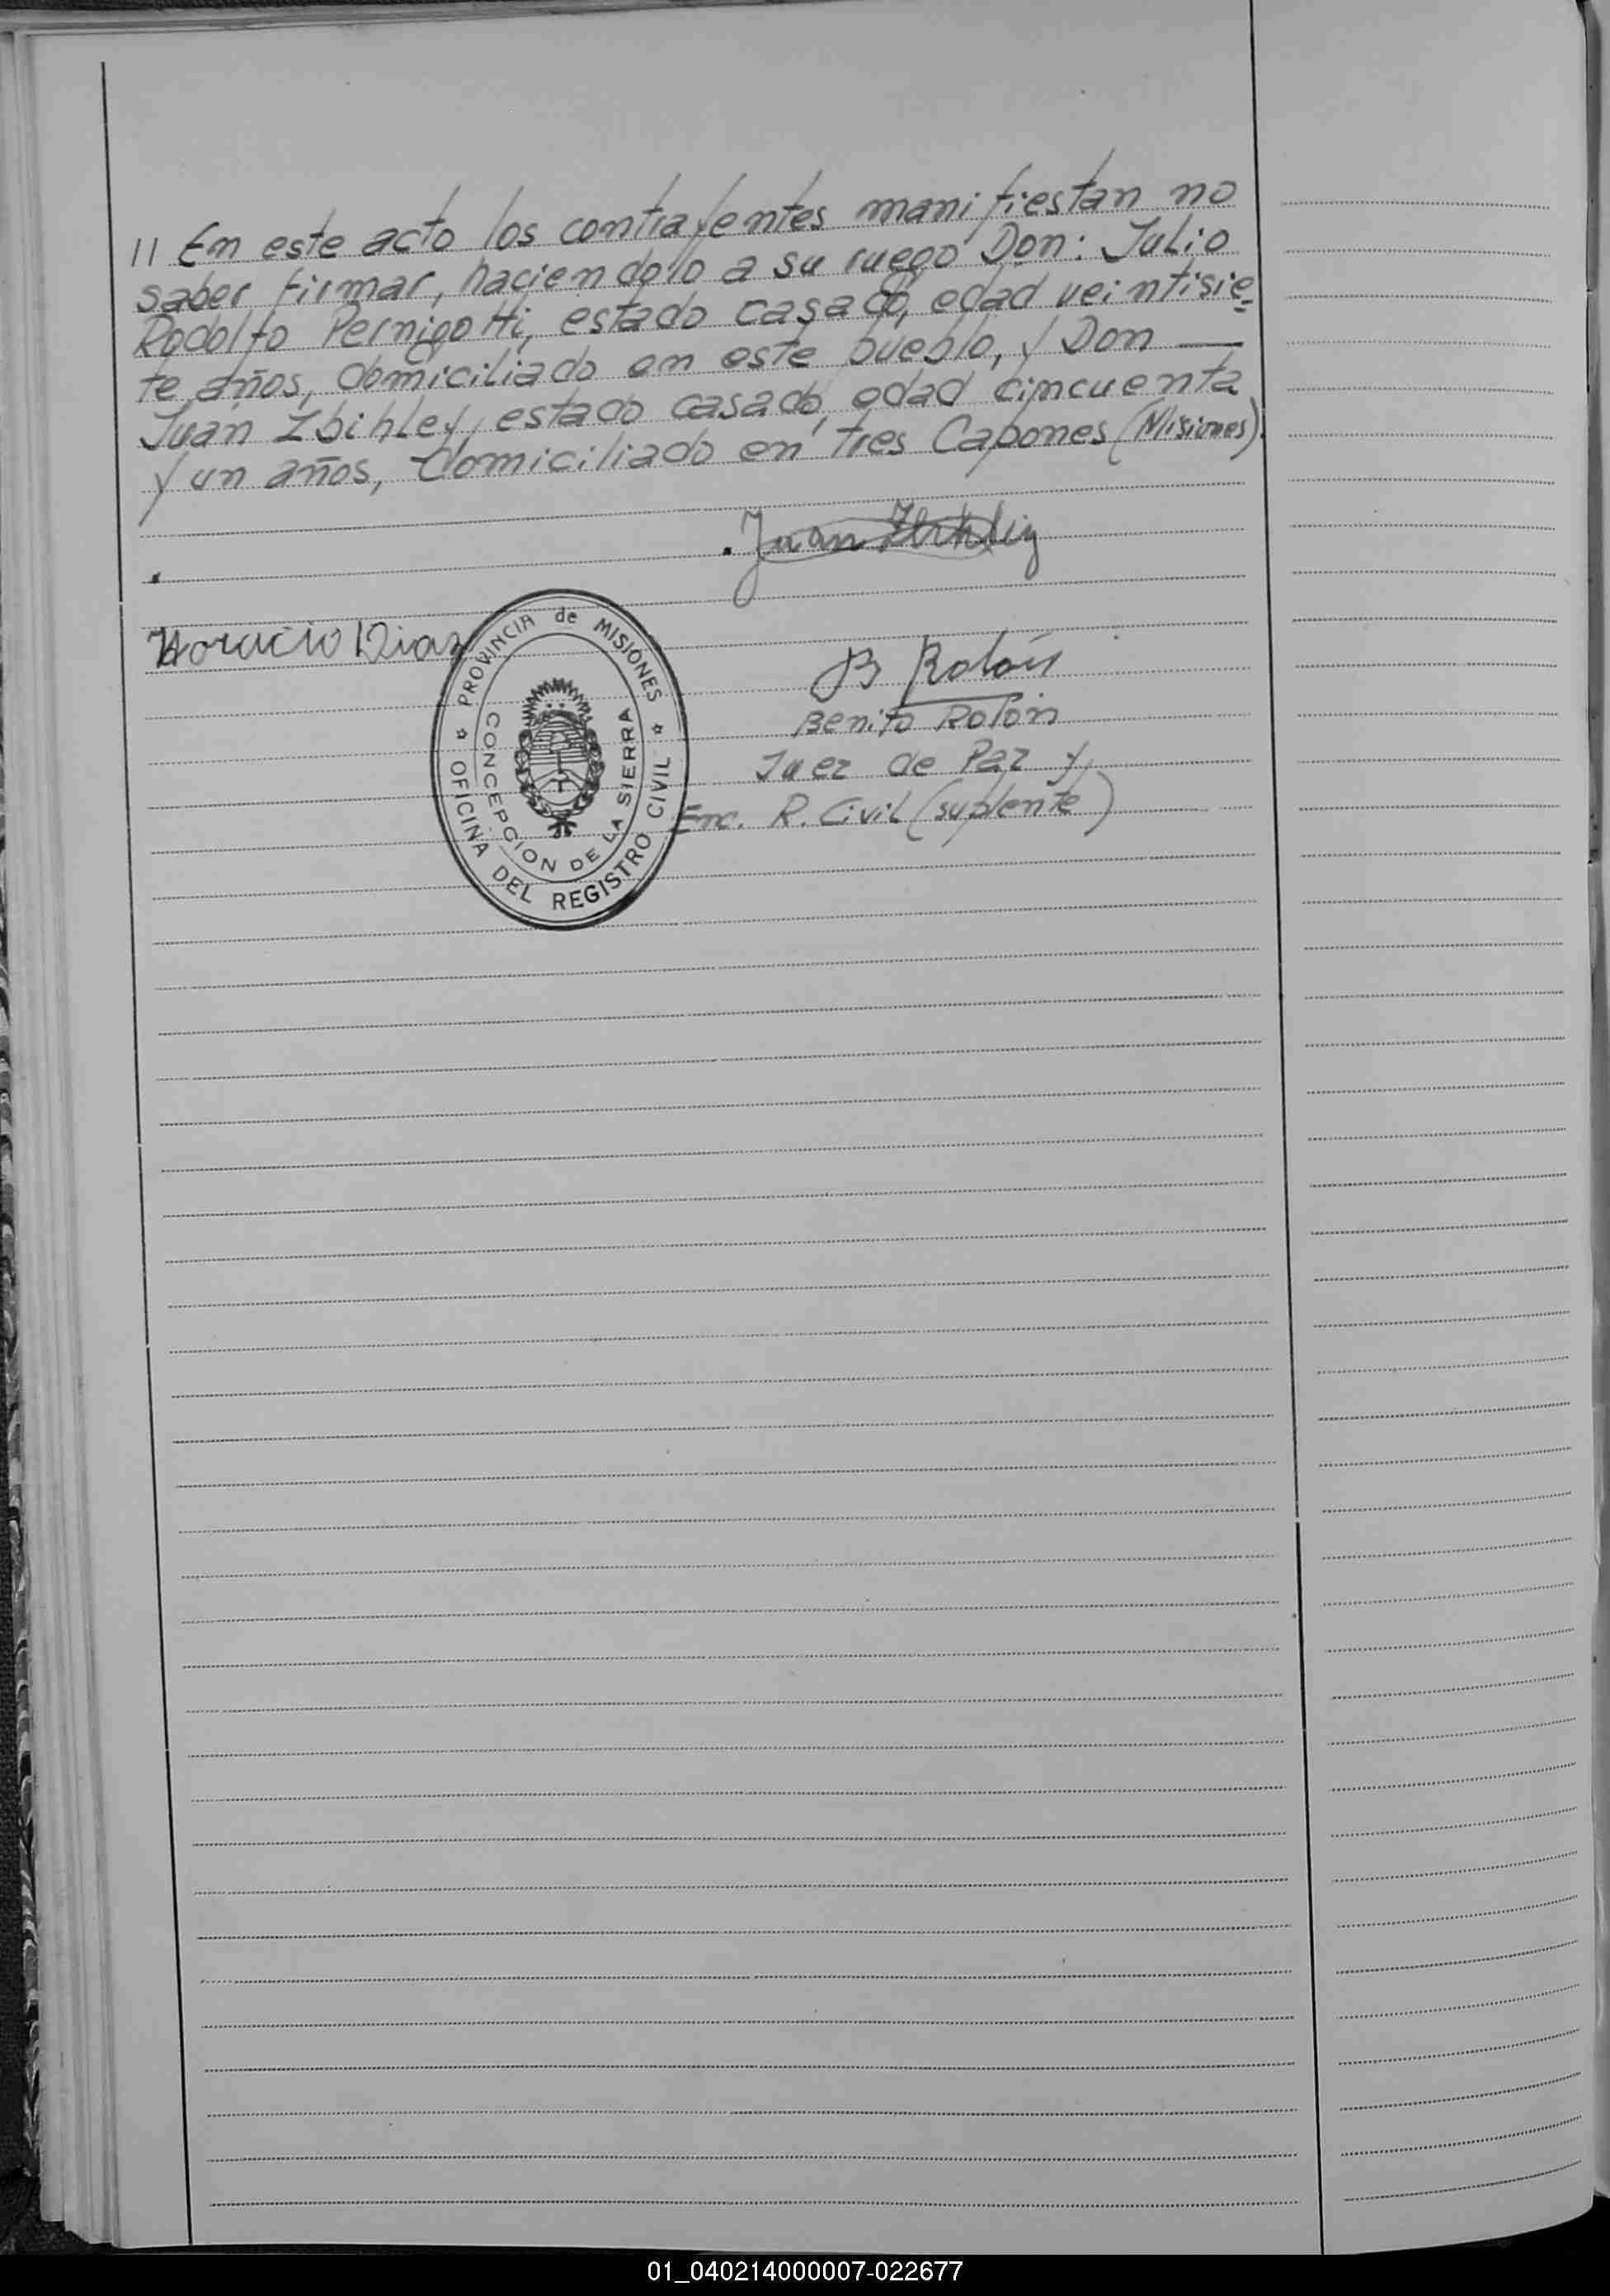 11 En este acto los contrayentes manifiestan no
saber firmar, haciendolo a su ruego Don: Julio
Rodolfo Pernigotti, estado casado, edad veintisie_
te años, domiciliado en este pueblo, y Don —
Juan Zbihley, estado casado, edad cincuenta
y un años, domiciliado en tres Capones (Misiones).
. Juan
Horacio Diaz
PROVINCIA de MISIONES
OFICINA DEL REGISTRO CIVIL
CONCEPCION DE LA SIERRA
B Rolón
Benito Rolón
Juez de Paz y
Enc. R. Civil (suplente)
01_040214000007-022677